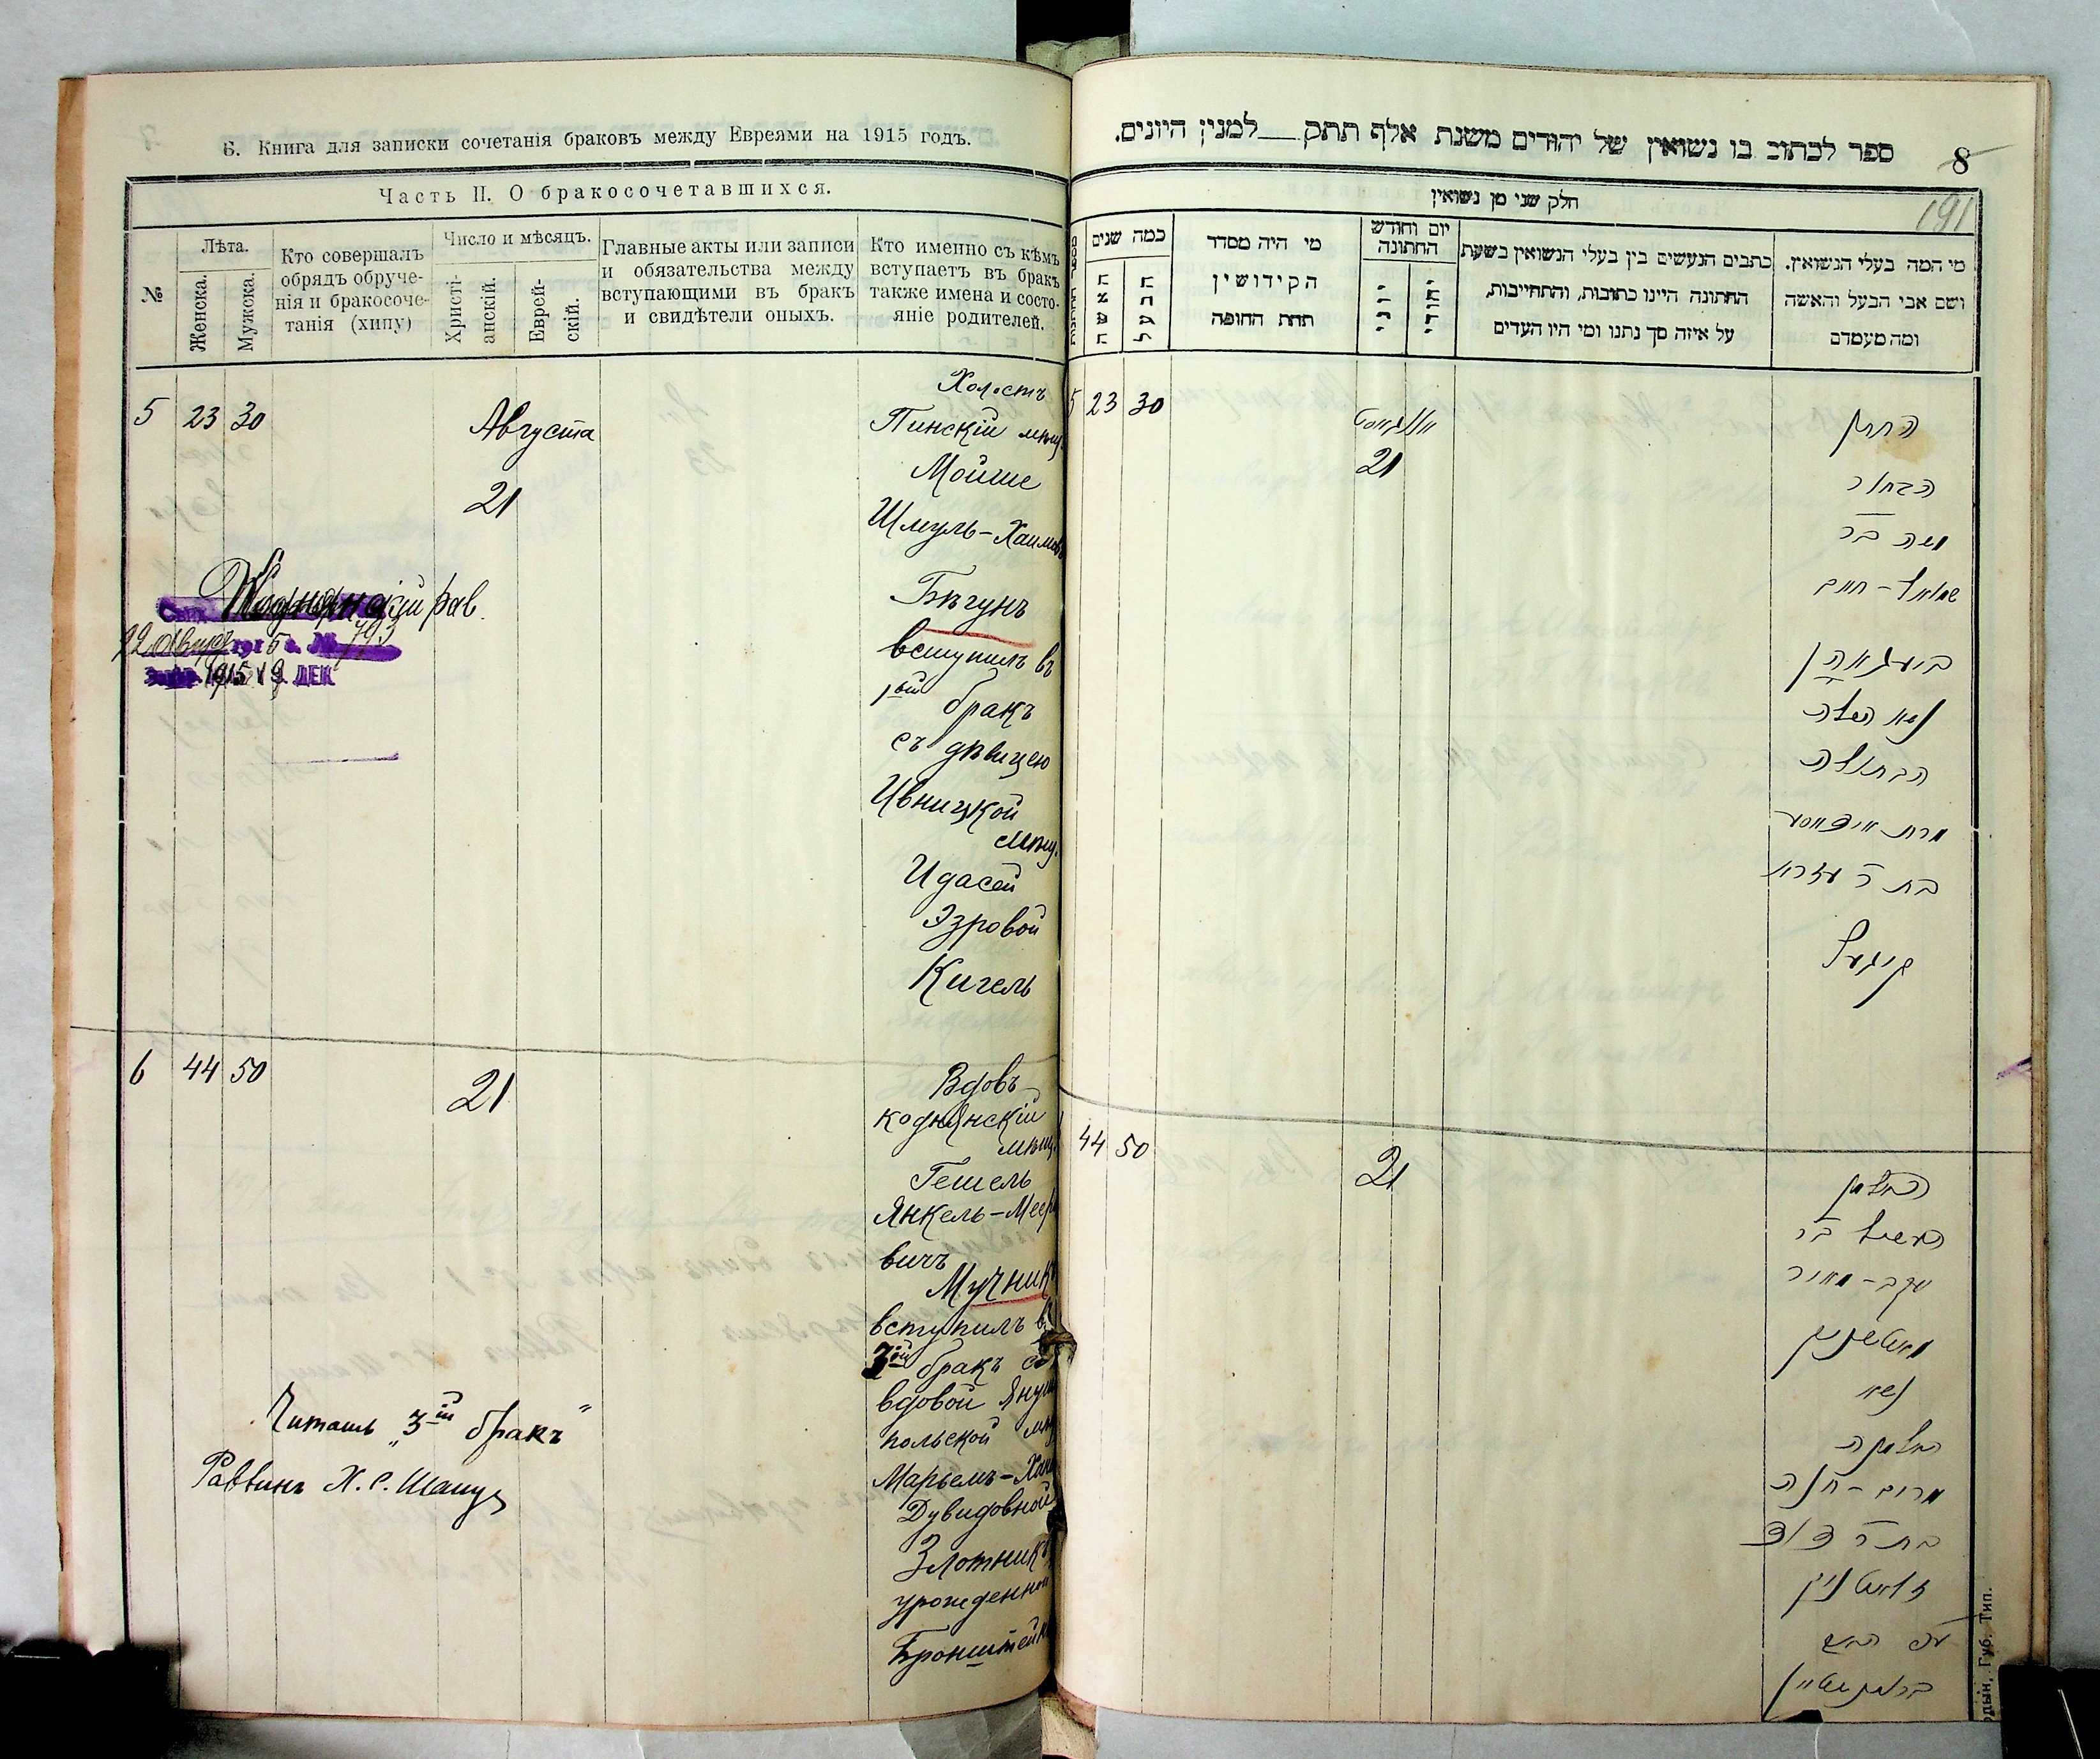 Б. Книга для записки сочетанія браковъ между Евреями на 1915 годъ.
Часть II. О бракосочетавшихся.
№
Лѣта.
Женска.
Мужска.
Кто совершалъ
обрядъ обруче-
нія и бракосоче-
танія (хипу)
Число и мѣсяцъ.
Христі-
анскій.
Еврей-
скій.
Главные акты или записи
и обязательства между
вступающими въ бракъ
и свидѣтели оныхъ.
Кто именно съ кѣмъ
вступаетъ въ бракъ
также имена и состо-
яніе родителей.
5 23 30
Августа
21
Холостъ
Пинскій мѣщ
Мойше
Шмуль-Хаимов
Бѣгунъ
вступилъ въ
1ый бракъ
съ дѣвицею
Ивницкой
мѣщ.
Идасей
Эзровой
Кигель
рав.
22 Август 1915 г. № 793
1915 19 ДЕК
6 44 50
21
Вдовъ
коднянскій
мѣщ.
Гешель
Янкель-Меер
вичъ
Мучник
вступилъ в
3ій бракъ съ
вдовой Януш
польской мѣщ
Марьемъ-Хан
Дувидовной
Злотник
урожденной
Бронштейн
Читать „3ій бракъ“
Раввинъ Х. С. Шапу
ספר לכתוב בו נשואין של יהודים משנת אלף תתק למנין היונים.
8
191
חלק שני מן נשואין
כמה שנים
האשה
הבעל
מי היה מסדר
הקידושין
תחת החופה
יום וחודש
החתונה
יוני
יהודי
כתבים הנעשים בין בעלי הנשואין בשעת
החתונה היינו כתובות, והתחייבות,
על איזה סך נתנו ומי היו העדים
מי המה בעלי הנשואין.
ושם אבי הבעל והאשה
ומה מעמדם
5 23 30
אויגוסט
21
החתן
הבחור
משה בר
שמואל-חיים
ביעגאהן
נשא השלה
הבתולה
מרת אידאסע
בת ר עזרא
קיגעל
44 50
21
האלמן
העשיל בר
יעקב-מאיר
מוטשניק
נשא
האלמנה
מרים-חנה
בת ר דוד
זלאטניק
בראנשטיין